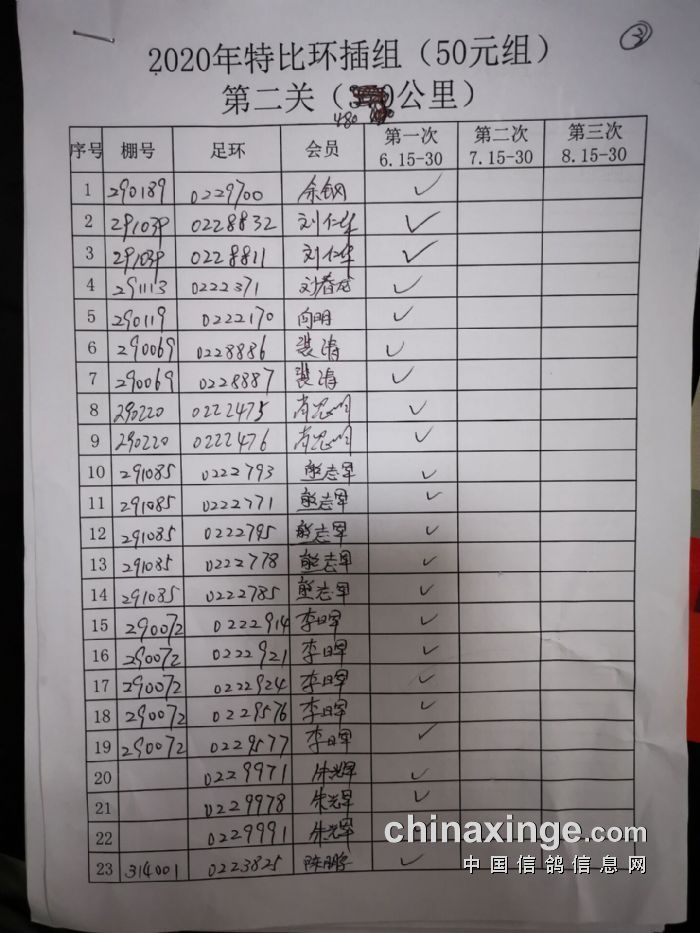 ③
2020年特比环插组（50元组）
第二关（公里）
480
序号 棚号 足环 会员 第一次 6.15-30 第二次 7.15-30 第三次 8.15-30
1 290189 0229700 余钢 ✓
2 291039 0228832 刘仁华 ✓
3 291039 0228811 刘仁华 ✓
4 291113 0222371 刘春龙 ✓
5 290119 0222170 向明 ✓
6 290069 0228886 裴涛 ✓
7 290069 0228887 裴涛 ✓
8 290220 0222475 肖忠明 ✓
9 290220 0222476 肖忠明 ✓
10 291085 0222793 熊志军 ✓
11 291085 0222771 熊志军 ✓
12 291085 0222795 熊志军 ✓
13 291085 0222778 熊志军 ✓
14 291085 0222785 熊志军 ✓
15 290072 0222914 李日军 ✓
16 290072 0222921 李日军 ✓
17 290072 0222924 李日军 ✓
18 290072 0229576 李日军 ✓
19 290072 0229577 李日军 ✓
20 0229971 朱光军 ✓
21 0229978 朱光军 ✓
22 0229991 朱光军
23 314001 0223825 陈鹏宇 ✓
chinaxinge.com
中国信鸽信息网